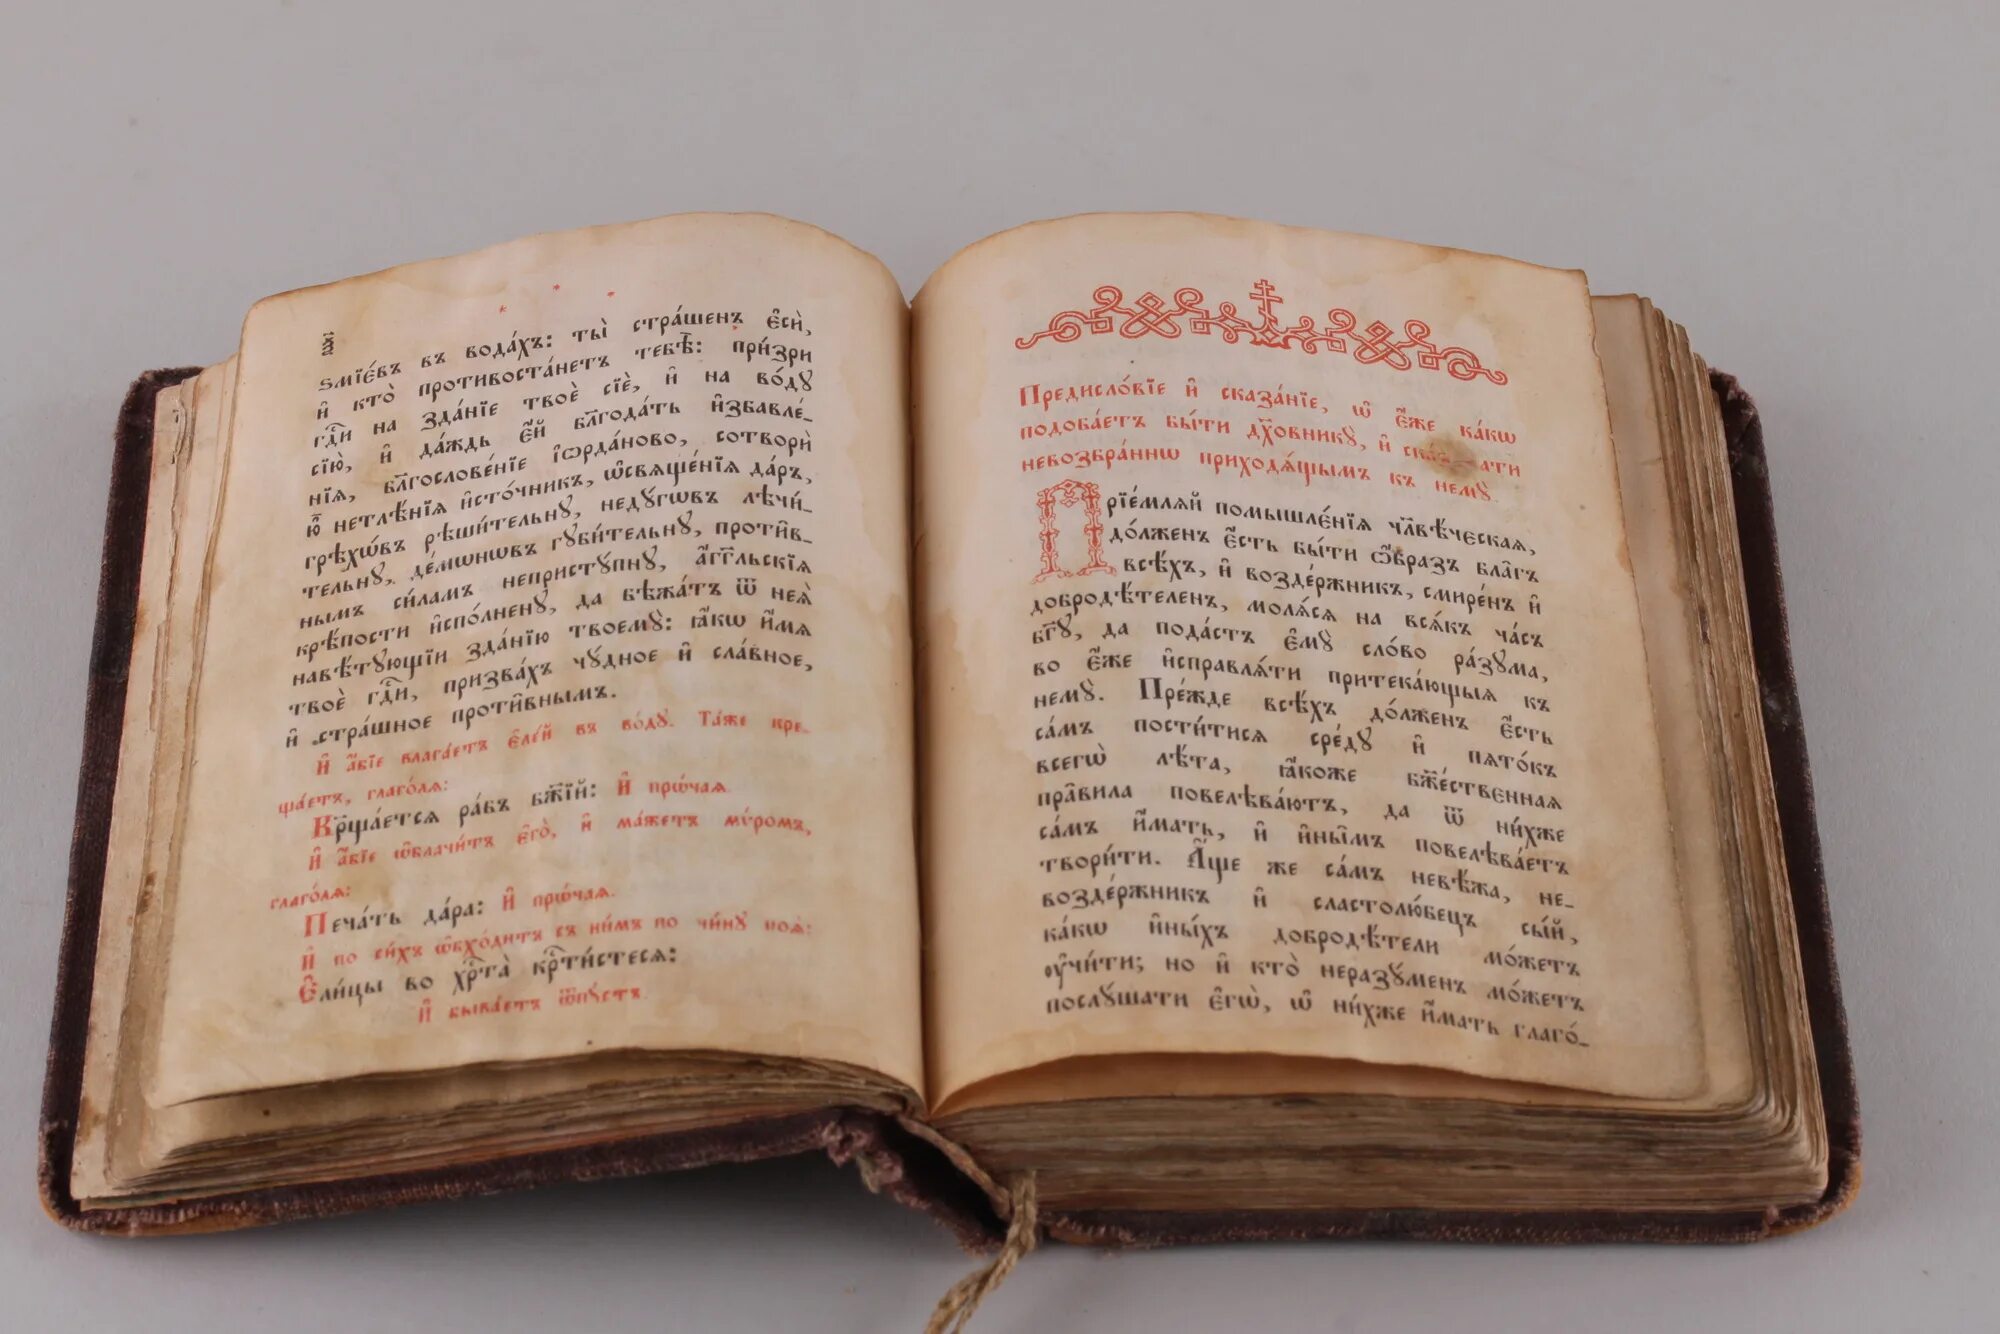 ѕмїе́въ въ вода́хъ: ты̀ стра́шенъ є҆сѝ,
и҆ кто̀ противоста́нетъ тебѣ̀: при́зри
гдⷭ҇и на зда́нїе твоѐ сїѐ, и҆ на во́дꙋ
сїю̀, и҆ да́ждь є҆́й бл҃года́ть и҆збавле́-
нїѧ, бл҃гослове́нїе і҆ѻрда́ново, сотворѝ
ю҆̀ нетлѣ́нїѧ и҆сто́чникъ, ѡ҆свѧще́нїѧ да́ръ,
грѣхѡ́въ рѣши́тельнꙋ, недꙋ́гѡвъ лѣчи́-
тельнꙋ, де́мѡнѡвъ гꙋби́тельнꙋ, проти̑в-
нымъ си́ламъ непристꙋ́пнꙋ, а҆́гг҃льскїѧ
крѣ́пости и҆спо́лненꙋ, да бѣжа́тъ ѿ неѧ̀
навѣ́тꙋющїи зда́нїю твоемꙋ̀: ꙗ҆́кѡ и҆́мѧ
твоѐ гдⷭ҇и, призва́хъ чꙋ́дное и҆ сла́вное,
и҆ стра́шное проти̑внымъ.
И҆ а҆́бїе влага́етъ є҆ле́й въ во́дꙋ. Та́же кре-
ща́етъ, глаго́лѧ:
Кр҃ща́етсѧ ра́бъ бж҃їй: И҆ прѡ́чаѧ.
И҆ а҆́бїе ѡ҆блачи́тъ є҆го̀, и҆ ма́жетъ мѵ́ромъ,
глаго́лѧ:
Печа́ть да́ра: И҆ прѡ́чаѧ.
И҆ по си́хъ ѡ҆бхо́дитъ съ ни́мъ по чи́нꙋ поѧ̀:
Є҆ли́цы во хрⷭ҇та̀ крⷭ҇ти́стесѧ:
И҆ быва́етъ ѿпꙋ́стъ.
Предисло́вїе и҆ сказа́нїе, ѡ҆ є҆́же ка́кѡ
подоба́етъ бы́ти дꙋхо́вникꙋ, и҆ сказати
невозбра́ннѡ приходѧ́щымъ къ немꙋ̀.
Прїе́млѧй помышле́нїѧ чл҃вѣ́ческаѧ,
до́лженъ є҆́сть бы́ти ѡ҆́бразъ бла́гъ
всѣ́хъ, и҆ возде́ржникъ, смире́нъ и҆
добродѣ́теленъ, молѧ́сѧ на всѧ́къ ча́съ
бг҃ꙋ, да пода́стъ є҆мꙋ̀ сло́во ра́зꙋма,
во є҆́же и҆справлѧ́ти притека́ющыѧ къ
немꙋ̀. Пре́жде всѣ́хъ до́лженъ є҆́сть
са́мъ пости́тисѧ сре́дꙋ и҆ пѧто́къ
всегѡ̀ лѣ́та, ꙗ҆́коже бж҃е́ственнаѧ
пра̑вила повелѣва́ютъ, да ѿ ни́хже
са́мъ и҆́мать, и҆ и҆ны̑мъ повелѣва́етъ
твори́ти. А҆́ще же са́мъ невѣ́жа, не-
возде́ржникъ и҆ сластолю́бецъ сы́й,
ка́кѡ и҆ны́хъ добродѣ́тели мо́жетъ
ᲂу҆чи́ти; но и҆ кто̀ неразꙋменъ мо́жетъ
послꙋ́шати є҆гѡ̀, ѡ҆ ни́хже и҆́мать глаго́-